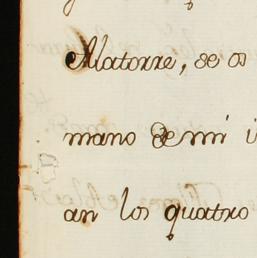 Alatorre, se os
mano de mi
an los quatro